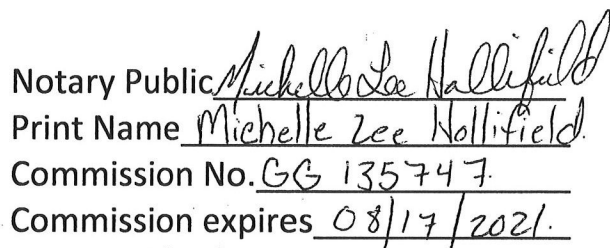 Notary Public Michelle Lee Hollifield
Print Name Michelle Lee Hollifield.
Commission No. GG 135747.
Commission expires 08/17/2021.